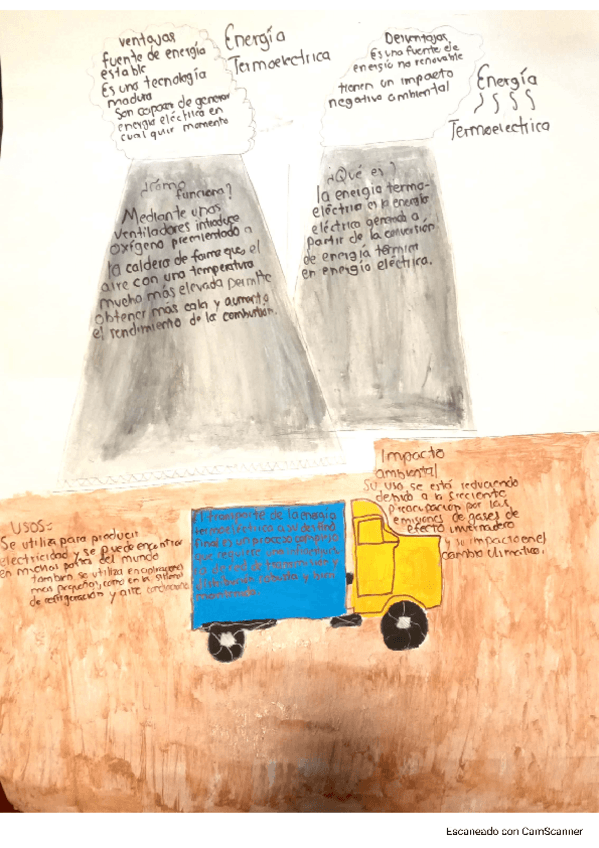 ventajas
fuente de energía
estable
Es una tecnología
madura
Son capaz de generar
energia eléctrica en
cual quir momento
Energía
Termoelectrica
Desventajas
Es una fuente de
energio no renovable
tienen un impacto
negativo ambiental
Energía
Termoelectrica
¿Cómo
funciona?
Mediante unos
ventiladores introduce
oxígeno premientado a
la caldera de forma que, el
aire con una temperatura
mucho más elevada permite
obtener más calor y aumenta
el rendimiento de la combustion.
¿Qué es?
la energía termo-
eléctrica es la energía
eléctrica generada a
partir de la conversión
de energía térmica
en energía eléctrica.
Impacto
ambiental
Su uso se está reduciendo
debido a la creciente
preocupacion por las
emisiones de gases de
efecto invernadero
y su impacto en el
cambio climatico.
USOS-
Se utiliza para producir
electricidad y se puede encontrar
en muchas partes del mundo
tambien se utiliza en aplicaciones
mas pequeñas, como en los sistemas
de refrigeración y aire condicionado
El transporte de la energia
termoeléctrica a su destino
final es un proceso complejo
que requiere una
de red de transmision y
distribucion robusta y bien
Escaneado con CamScanner